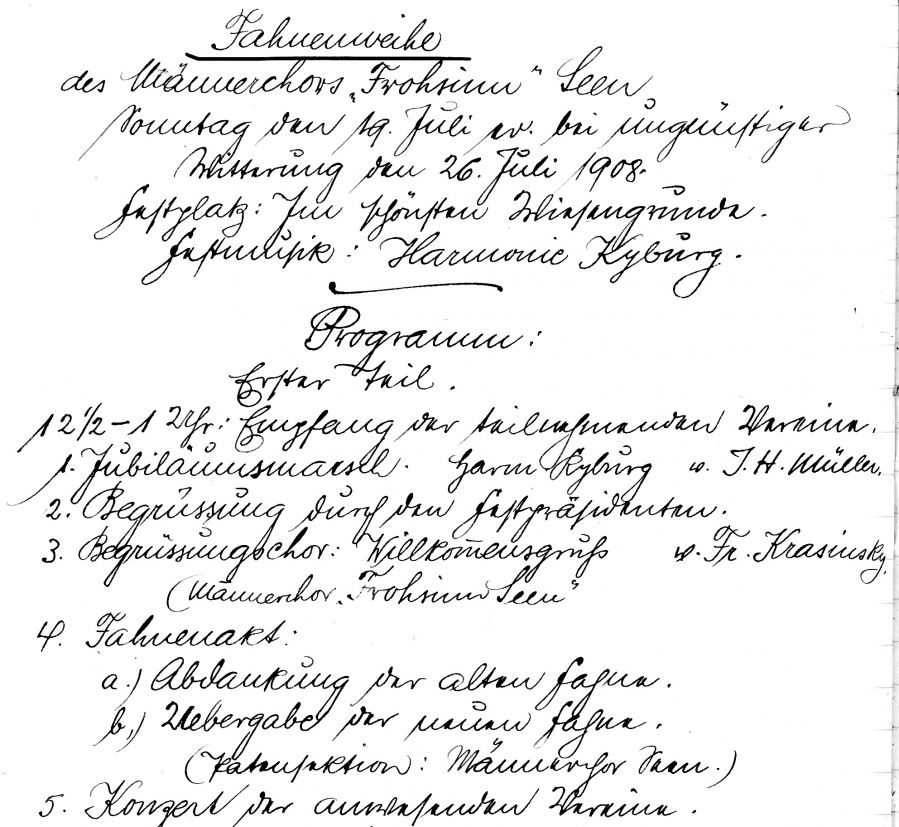 Fahnenweihe
des Männerchors „Frohsinn“ Seen
Sonntag den 19. Juli ev. bei ungünstiger
Witterung den 26. Juli 1908.
Festplatz: Im schönsten Wiesengrunde.
Festmusik: Harmonie Kyburg.
Programm:
Erster Teil.
12 1/2 – 1 Uhr: Empfang der teilnehmenden Vereine.
1. Jubiläumsmarsch. Harm Kyburg v. J. H. Müller.
2. Begrüssung durch den Festpräsidenten.
3. Begrüssungschor: Willkom̅ensgruß v. Fr. Krasinsky.
(Männerchor „Frohsinn Seen“
4. Fahnenakt:
a.) Abdankung der alten Fahne.
b.) Uebergabe der neuen Fahne.
(Patensektion: Männerchor Seen.)
5. Konzert der anwesenden Vereine.